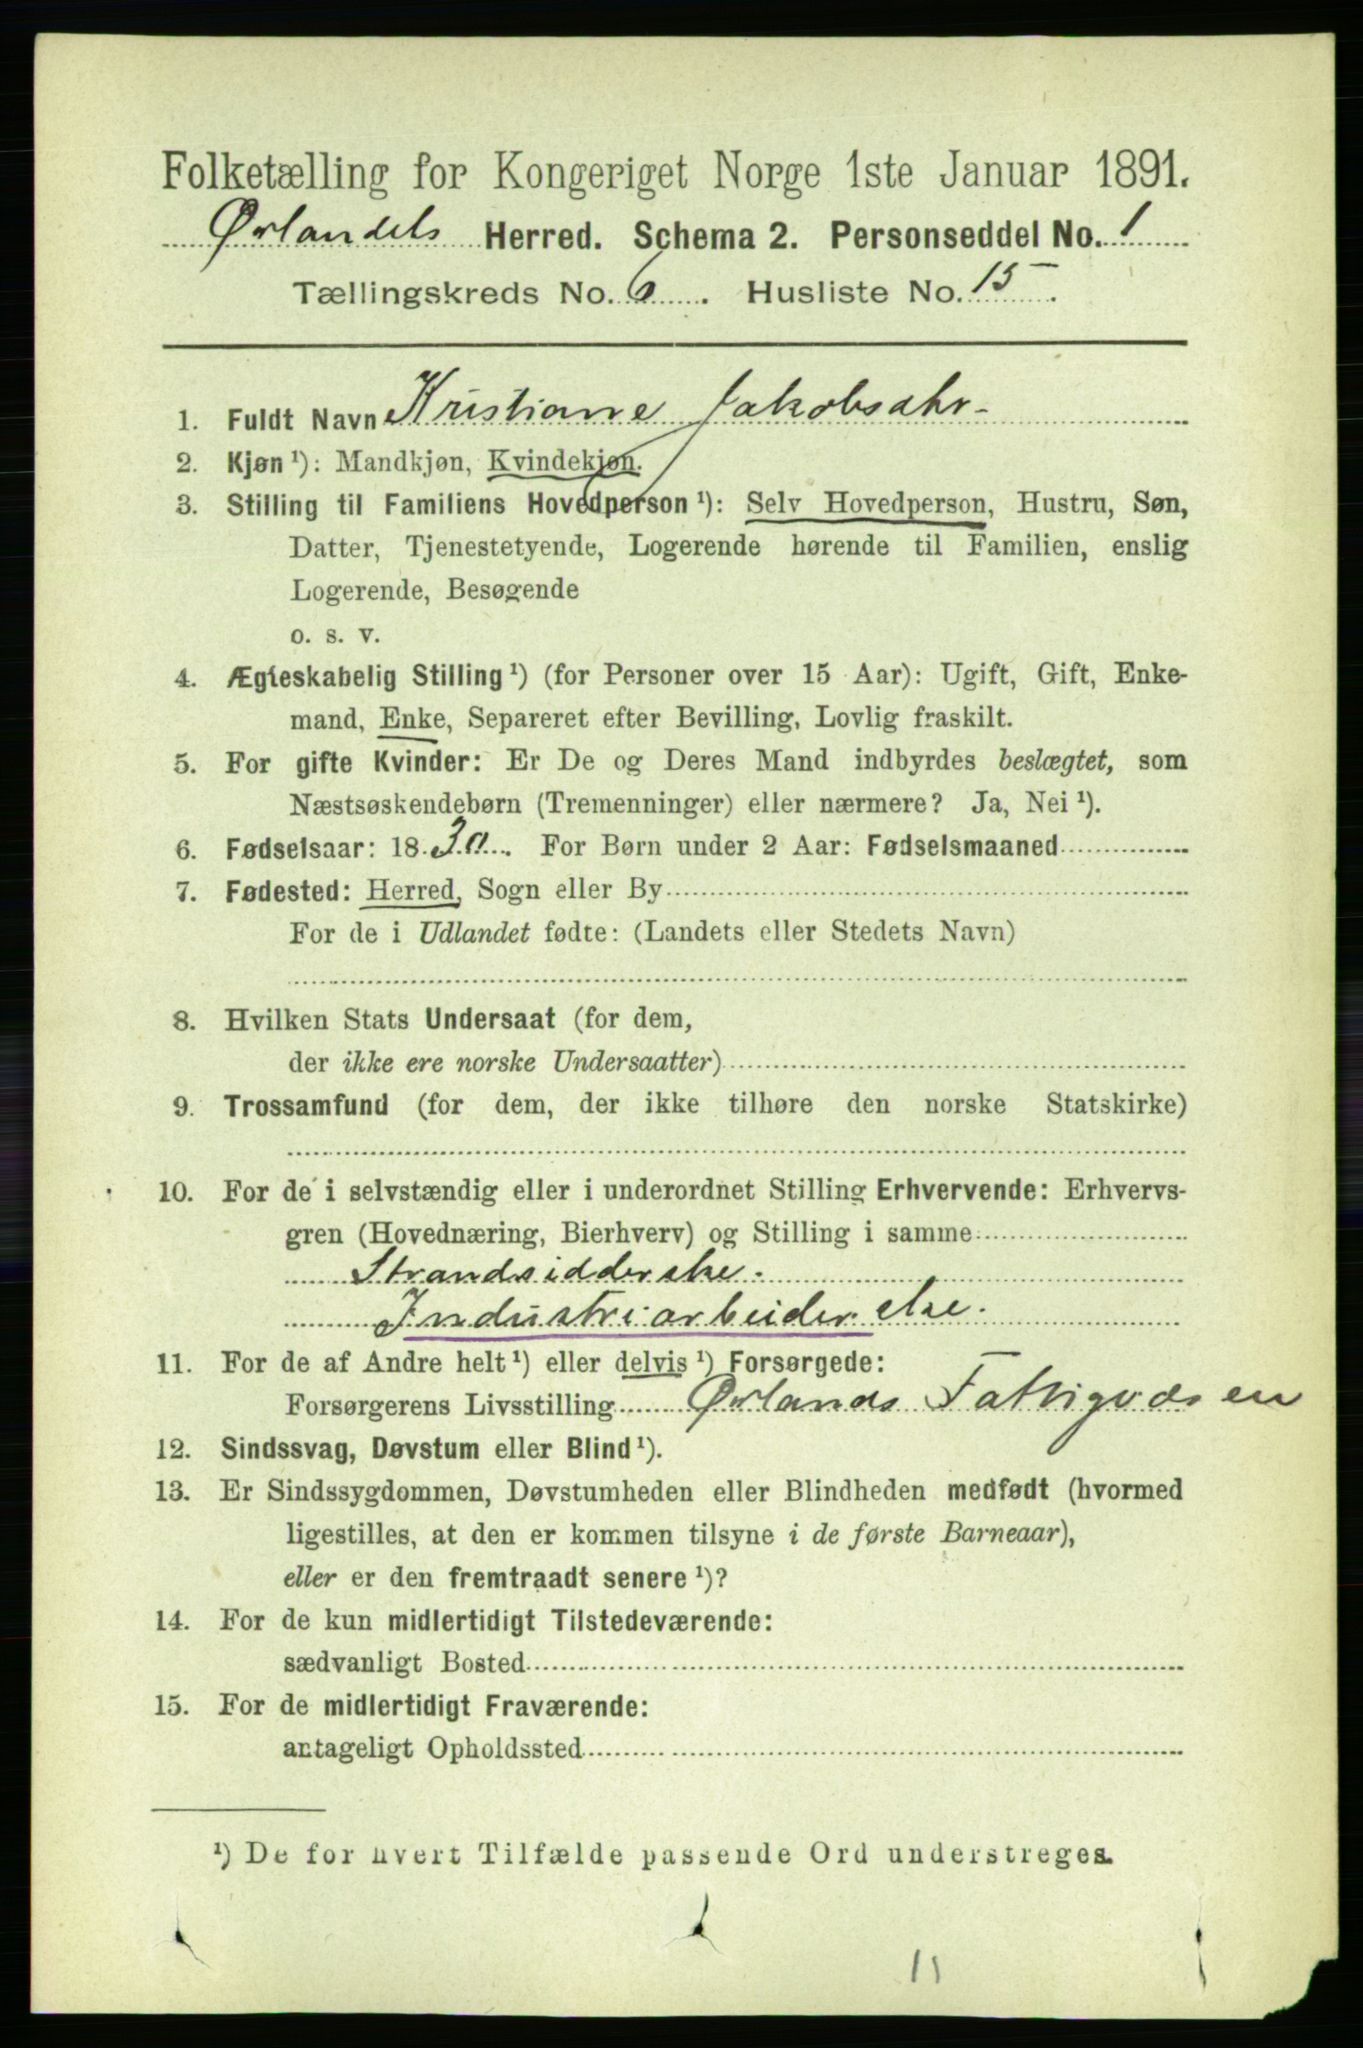 Folketælling for Kongeriget Norge 1ste Januar 1891.
Ørlandets Herred. Schema 2. Personseddel No. 1
Tællingskreds No. 6. Husliste No. 15.
1. Fuldt Navn Kristiane Jakobsdtr.
2. Kjøn ¹): Mandkjøn, Kvindekjøn.
3. Stilling til Familiens Hovedperson ¹): Selv Hovedperson, Hustru, Søn,
Datter, Tjenestetyende, Logerende hørende til Familien, enslig
Logerende, Besøgende
o. s. v.
4. Ægteskabelig Stilling ¹) (for Personer over 15 Aar): Ugift, Gift, Enke-
mand, Enke, Separeret efter Bevilling, Lovlig fraskilt.
5. For gifte Kvinder: Er De og Deres Mand indbyrdes beslægtet, som
Næstsøskendebørn (Tremenninger) eller nærmere? Ja, Nei ¹).
6. Fødselsaar: 1830. For Børn under 2 Aar: Fødselsmaaned
7. Fødested: Herred, Sogn eller By
For de i Udlandet fødte: (Landets eller Stedets Navn)
8. Hvilken Stats Undersaat (for dem,
der ikke ere norske Undersaatter)
9. Trossamfund (for dem, der ikke tilhøre den norske Statskirke)
10. For de i selvstændig eller i underordnet Stilling Erhvervende: Erhvervs-
gren (Hovednæring, Bierhverv) og Stilling i samme
Strandsidderske.
Industriarbeiderske.
11. For de af Andre helt ¹) eller delvis ¹) Forsørgede:
Forsørgerens Livsstilling Ørlands Fattigvæsen
12. Sindssvag, Døvstum eller Blind ¹).
13. Er Sindssygdommen, Døvstumheden eller Blindheden medfødt (hvormed
ligestilles, at den er kommen tilsyne i de første Barneaar),
eller er den fremtraadt senere ¹)?
14. For de kun midlertidigt Tilstedeværende:
sædvanligt Bosted
15. For de midlertidigt Fraværende:
antageligt Opholdssted
¹) De for hvert Tilfælde passende Ord understreges.
11